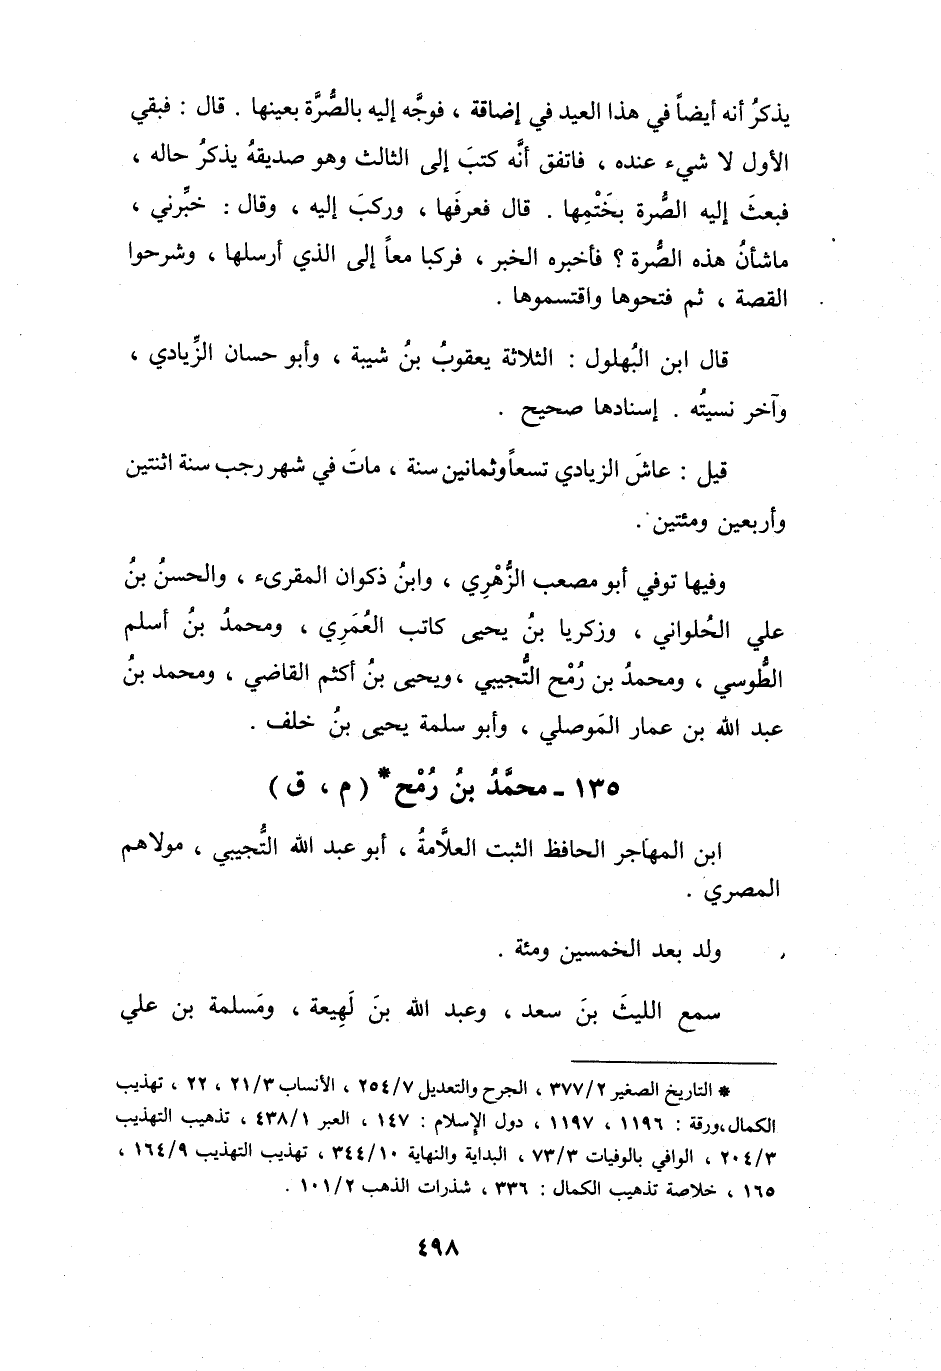 يذكرُ أنه أيضاً في هذا العيد في إضاقة ، فوجَّه إليه بالصُّرَّة بعينها . قال : فبقي
الأول لا شيء عنده ، فاتفق أنَّه كتبَ إلى الثالث وهو صديقهُ يذكرُ حاله ،
فبعثَ إليه الصُّرة بخَتْمِها . قال فعرفَها ، وركبَ إليه ، وقال : خبِّرني ،
ماشأنُ هذه الصُّرة ؟ فأخبره الخبر ، فركبا معاً إلى الذي أرسلها ، وشرحوا
القصة ، ثم فتحوها واقتسموها .
قال ابن البُهلول : الثلاثة يعقوبُ بنُ شيبة ، وأبو حسان الزِّيادي ،
وآخر نسيتُه . إسنادها صحيح .
قيل : عاشَ الزيادي تسعاً وثمانين سنة ، ماتَ في شهر رجب سنة اثنتين
وأربعين ومئتين .
وفيها توفي أبو مصعب الزُّهْرِي ، وابنُ ذكوان المقرىء ، والحسنُ بنُ
علي الحُلواني ، وزكريا بنُ يحيى كاتب العُمَرِي ، ومحمدُ بنُ أسلم
الطُّوسي ، ومحمدُ بن رُمْح التُّجيبي ، ويحيى بنُ أكثم القاضي ، ومحمد بنُ
عبد الله بن عمار المَوصلي ، وأبو سلمة يحيى بنُ خلف .
١٣٥ - محمَّدُ بنُ رُمْح* ( م ، ق )
ابن المهاجر الحافظ الثبت العلاَّمةُ ، أبو عبد الله التُّجيبي ، مولاهم
المصري .
ولد بعد الخمسين ومئة .
سمع الليثَ بنَ سعد ، وعبد الله بنَ لَهِيعة ، ومَسلمة بن علي
* التاريخ الصغير ٣٧٧/٢ ، الجرح والتعديل ٢٥٤/٧ ، الأنساب ٢١/٣ ، ٢٢ ، تهذيب
الكمال،ورقة : ١١٩٦ ، ١١٩٧ ، دول الإسلام : ١٤٧ ، العبر ٤٣٨/١ ، تذهيب التهذيب
٢٠٤/٣ ، الوافي بالوفيات ٧٣/٣ ، البداية والنهاية ٣٤٤/١٠ ، تهذيب التهذيب ١٦٤/٩ ،
١٦٥ ، خلاصة تذهيب الكمال : ٣٣٦ ، شذرات الذهب ١٠١/٢ .
٤٩٨